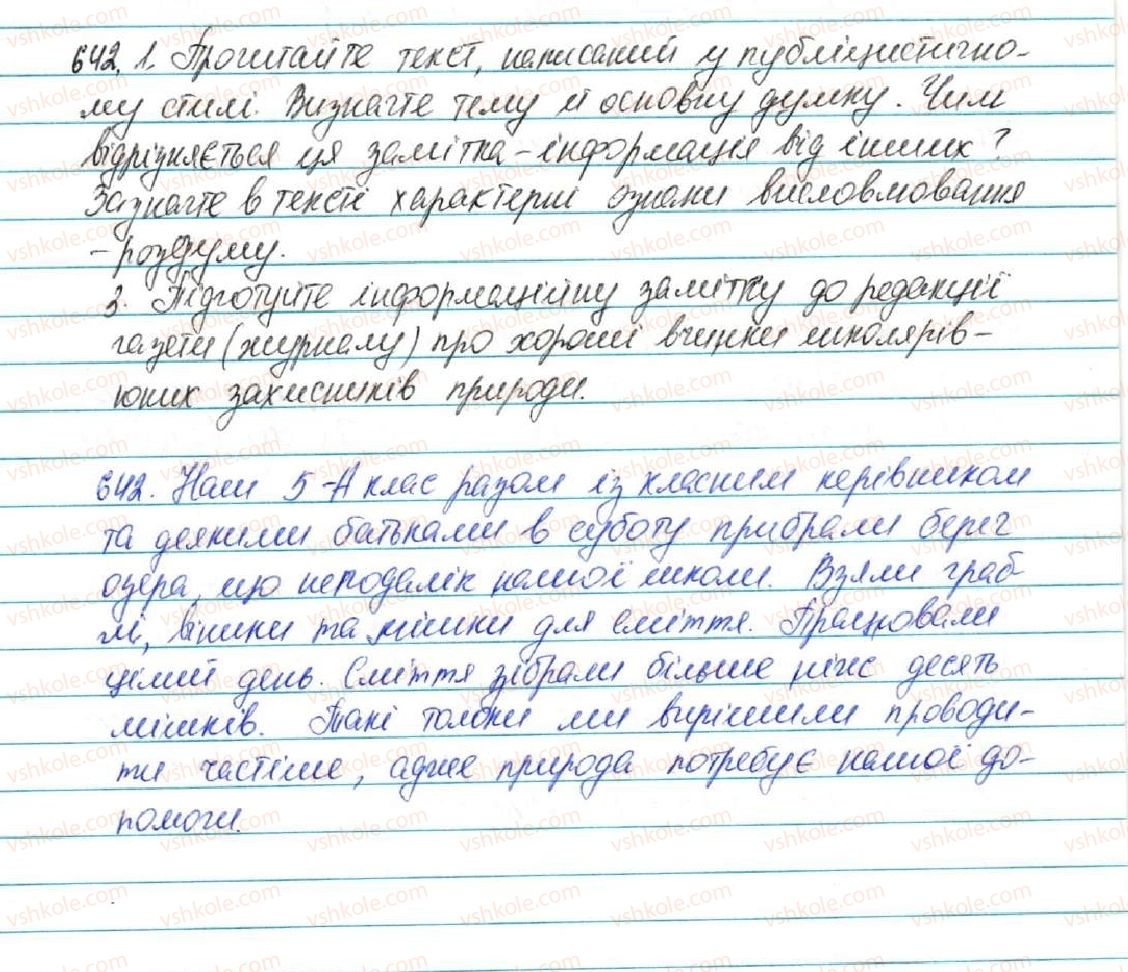 642. 1. Прочитайте текст, написаний у публіцистично-
му стилі. Визначте тему й основну думку. Чим
відрізняється ця замітка-інформація від інших?
Зазначте в тексті характерні ознаки висловлювання
-роздуму.
3. Підготуйте інформаційну замітку до редакції
газети (журналу) про хороші вчинки школярів-
юних захисників природи.
642. Наш 5-А клас разом із класним керівником
та деякими батьками в суботу прибрали берег
озера, що неподалік нашої школи. Взяли граб-
лі, віники та мішки для сміття. Працювали
цілий день. Сміття зібрали більше ніж десять
мішків. Такі толоки ми вирішили проводи-
ти частіше, адже природа потребує нашої до-
помоги.